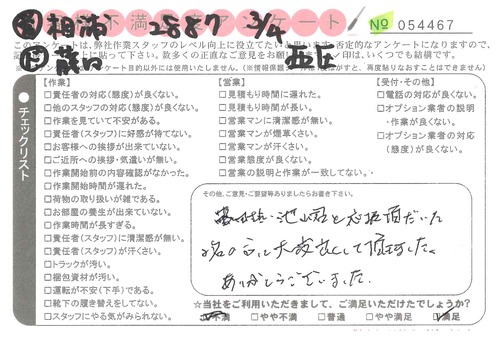 相浦 2887 3/4
不満 アンケート
№ 054467
このアンケートは、弊社作業スタッフのレベル向上に役立てたい
否定的なアンケートになりますので、
数多くの正直なご意見をお
いくつでも結構です。
アンケート目的以外には使用いたしません。
再度貼りなおすことはできません)
●チェックリスト
【作業】
□責任者の対応(態度)が良くない。
□他のスタッフの対応(態度)が良くない。
□作業を見ていて不安がある。
□責任者(スタッフ)に好感が持てない。
□お客様への挨拶が出来ていない。
□ご近所への挨拶・気遣いが無い。
□作業開始前の内容確認がなかった。
□作業開始時間が遅れた。
□荷物の取り扱いが雑である。
□お部屋の養生が出来ていない。
□作業時間が長すぎる。
□責任者(スタッフ)に清潔感が無い。
□責任者(スタッフ)が汗くさい。
□トラックが汚い。
□梱包資材が汚い。
□運転が不安(下手)である。
□靴下の履き替えをしてない。
□スタッフにやる気がみられない。
【営業】
□見積もり時間に遅れた。
□見積もり時間が長い。
□営業マンに清潔感が無い。
□営業マンが煙草くさい。
□営業マンが汗くさい。
□営業態度が良くない。
□営業の説明と作業が一致してない。
【受付・その他】
□電話の対応が良くない。
□オプション業者の説明
・作業が良くない。
□オプション業者の対応
(態度)が良くない。
その他、ご意見・ご要望等ありましたらお書き下さい。
池山君と
頂だいた
2名の方に大変
して頂きました。
ありがとうございました。
☆当社をご利用いただきまして、ご満足いただけたでしょうか?
□不満 □やや不満 □普通 □やや満足 □満足